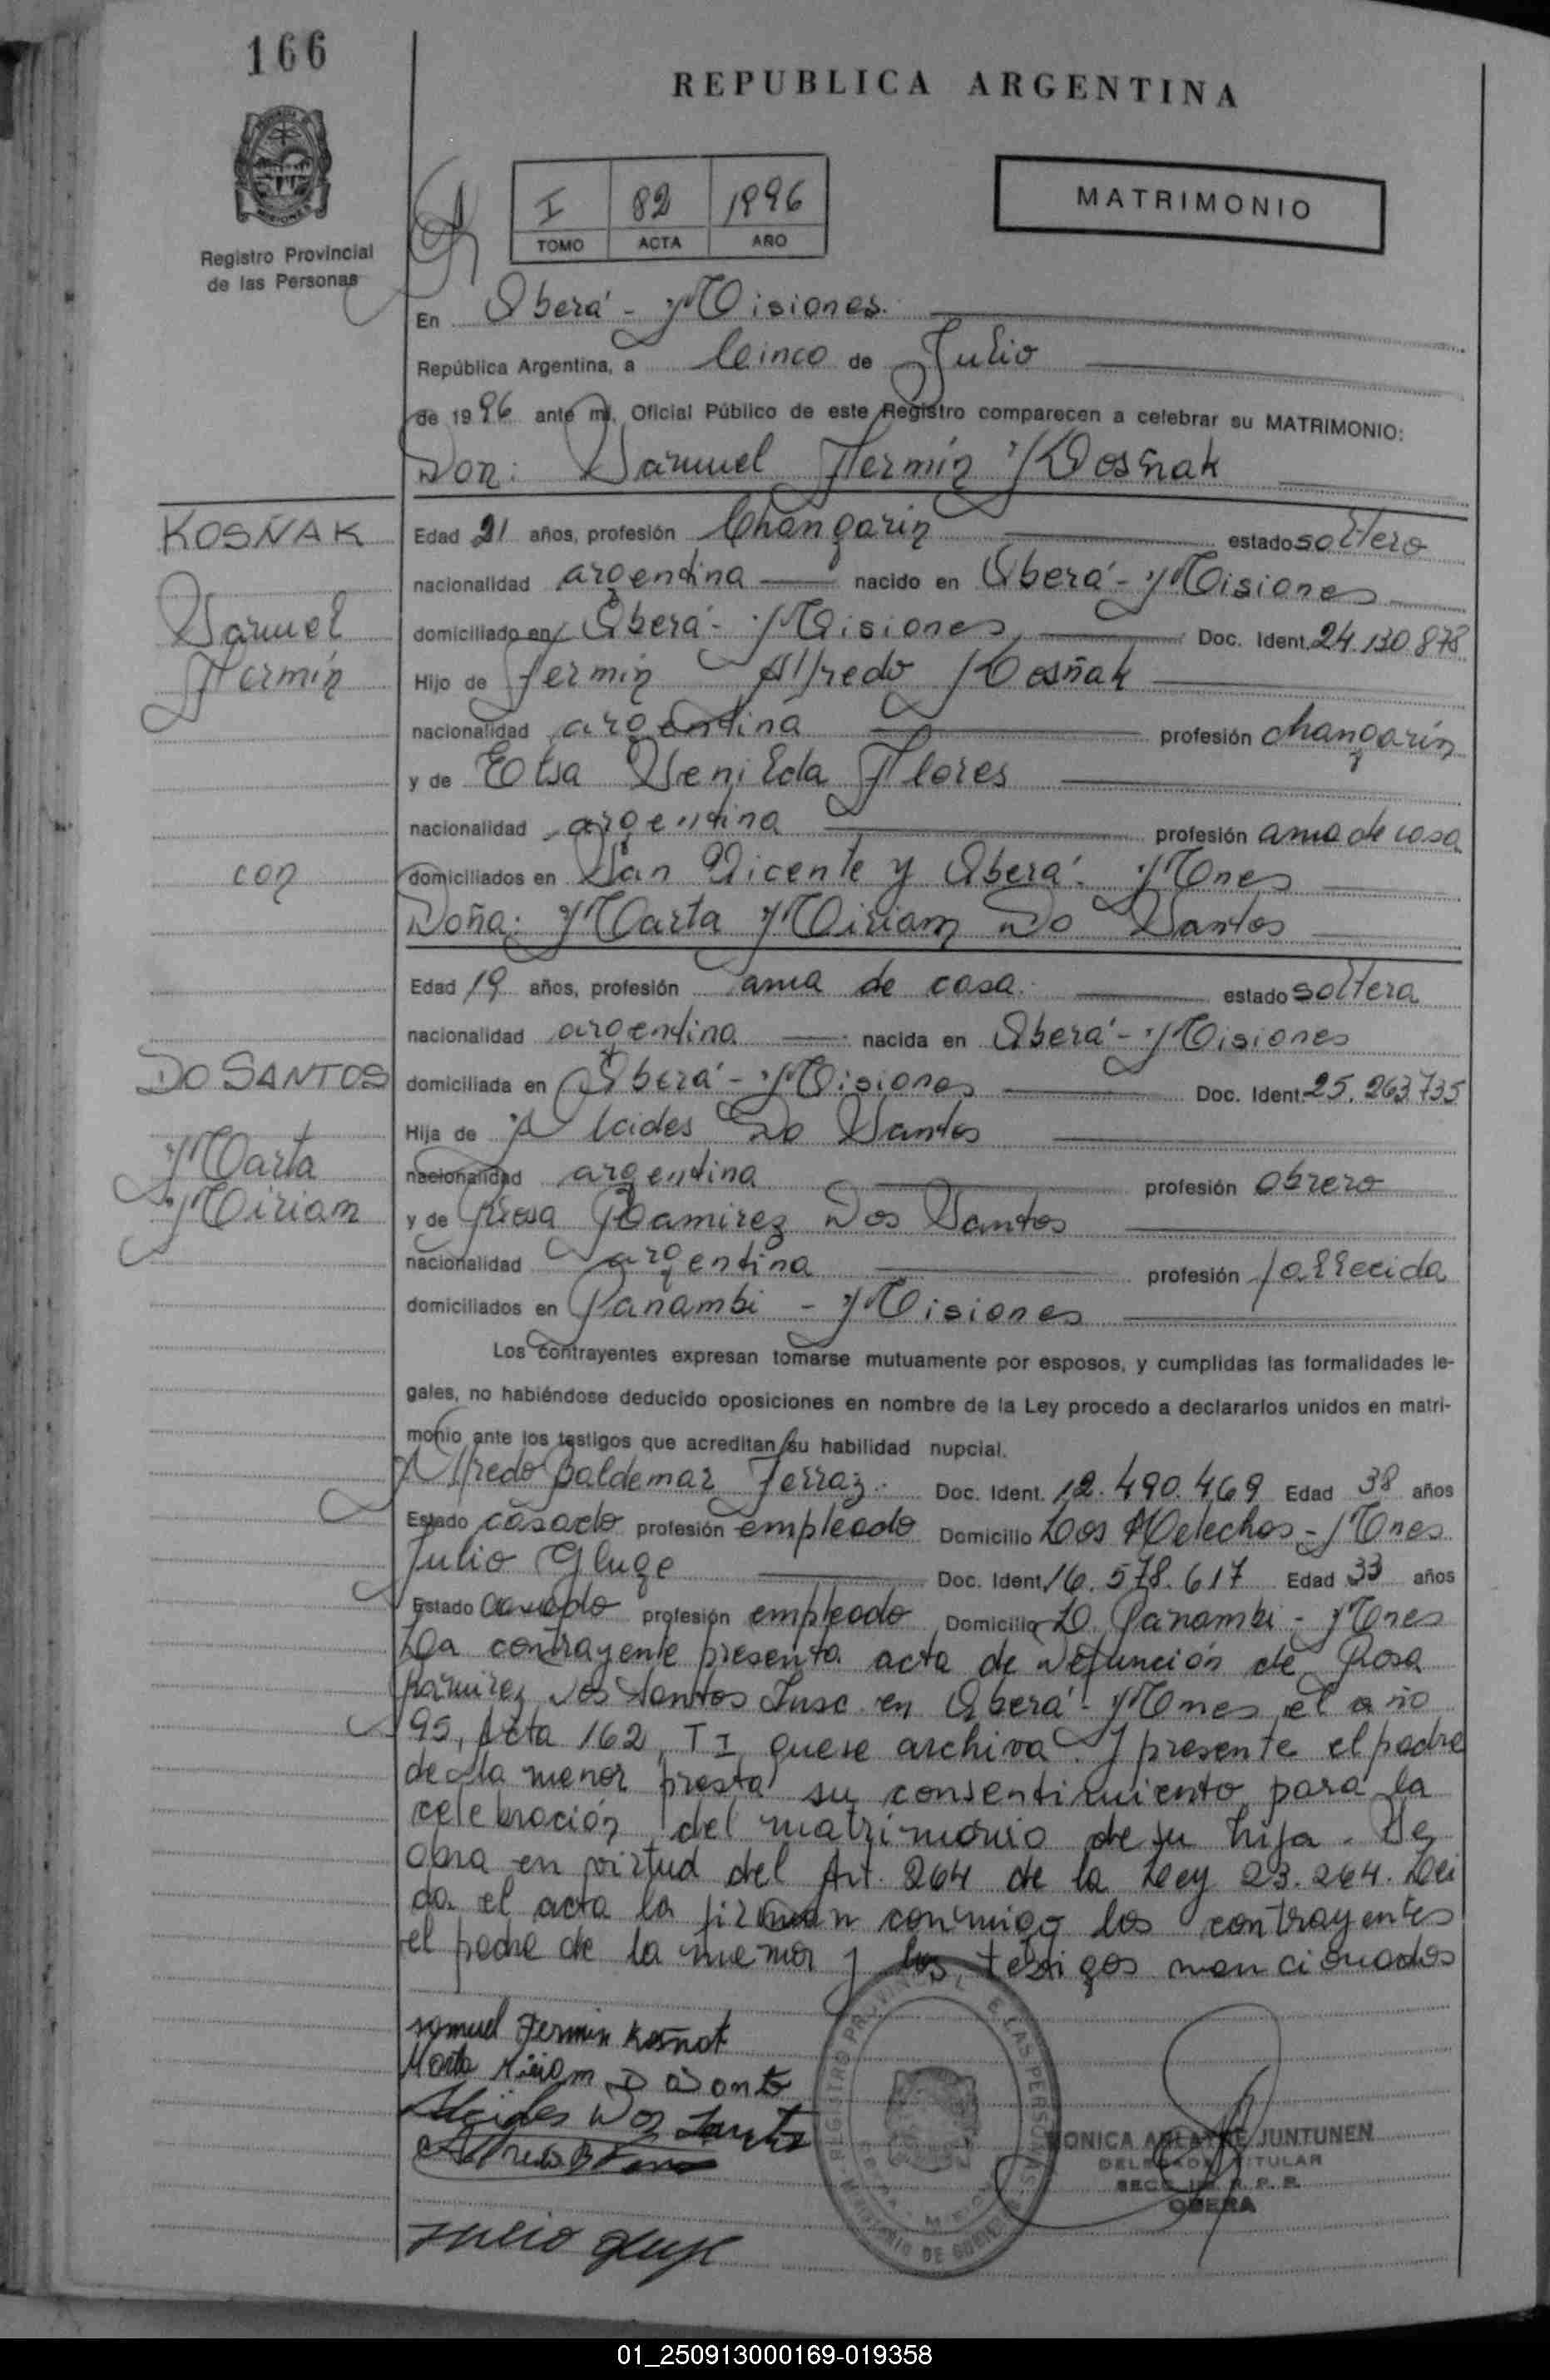 166
REPUBLICA ARGENTINA
MISIONES
Registro Provincial
de las Personas
I 82 1996
TOMO ACTA AÑO
MATRIMONIO
En Oberá - Misiones.
República Argentina, a Cinco de Julio
de 1996 ante mí, Oficial Público de este Registro comparecen a celebrar su MATRIMONIO:
Don: Samuel Fermín Kosñak
KOSÑAK
Samuel
Fermín
Edad 21 años, profesión Changarín estado soltero
nacionalidad argentina nacido en Oberá - Misiones
domiciliado en Oberá - Misiones Doc. Ident. 24.130.878
Hijo de Fermín Alfredo Kosñak
nacionalidad argentina profesión changarín
y de Elsa Senilda Flores
nacionalidad argentina profesión ama de casa
con
domiciliados en San Vicente y Oberá. Mnes
Doña: Marta Miriam Do Santos
Edad 19 años, profesión ama de casa. estado soltera
nacionalidad argentina nacida en Oberá - Misiones
DO SANTOS
Marta
Miriam
domiciliada en Oberá - Misiones Doc. Ident. 25.263.735
Hija de Alcides Do Santos
nacionalidad argentina profesión obrero
y de Rosa Ramirez Dos Santos
nacionalidad argentina profesión fallecida
domiciliados en Panambi - Misiones
Los contrayentes expresan tomarse mutuamente por esposos, y cumplidas las formalidades le-
gales, no habiéndose deducido oposiciones en nombre de la Ley procedo a declararlos unidos en matri-
monio ante los testigos que acreditan su habilidad nupcial.
Alfredo Baldemar Ferraz. Doc. Ident. 12.490.469 Edad 38 años
Estado casado profesión empleado Domicilio Los Helechos - Mnes
Julio Gluge Doc. Ident. 16.578.617 Edad 33 años
Estado casado profesión empleado Domicilio Panambi - Mnes
La contrayente presenta acta de defunción de Rosa
Ramirez Dos Santos Insc. en Oberá - Mnes, el año
95, Acta 162, T I, que se archiva. Y presente el padre
de la menor presta su consentimiento para la
celebración del matrimonio de su hija. Se
obra en virtud del Art. 264 de la Ley 23.264. Lei
da el acta la firman conmigo los contrayentes
el padre de la menor y los testigos mencionados
samuel Fermin Kosñak
Marta Miriam Do Santo
Alcides Dos Santos
Julio Gluge
REGISTRO PROVINCIAL DE LAS PERSONAS
MINISTERIO DE GOBIERNO
MONICA JUNTUNEN
DELEGADO TITULAR
OBERA
01_250913000169-019358